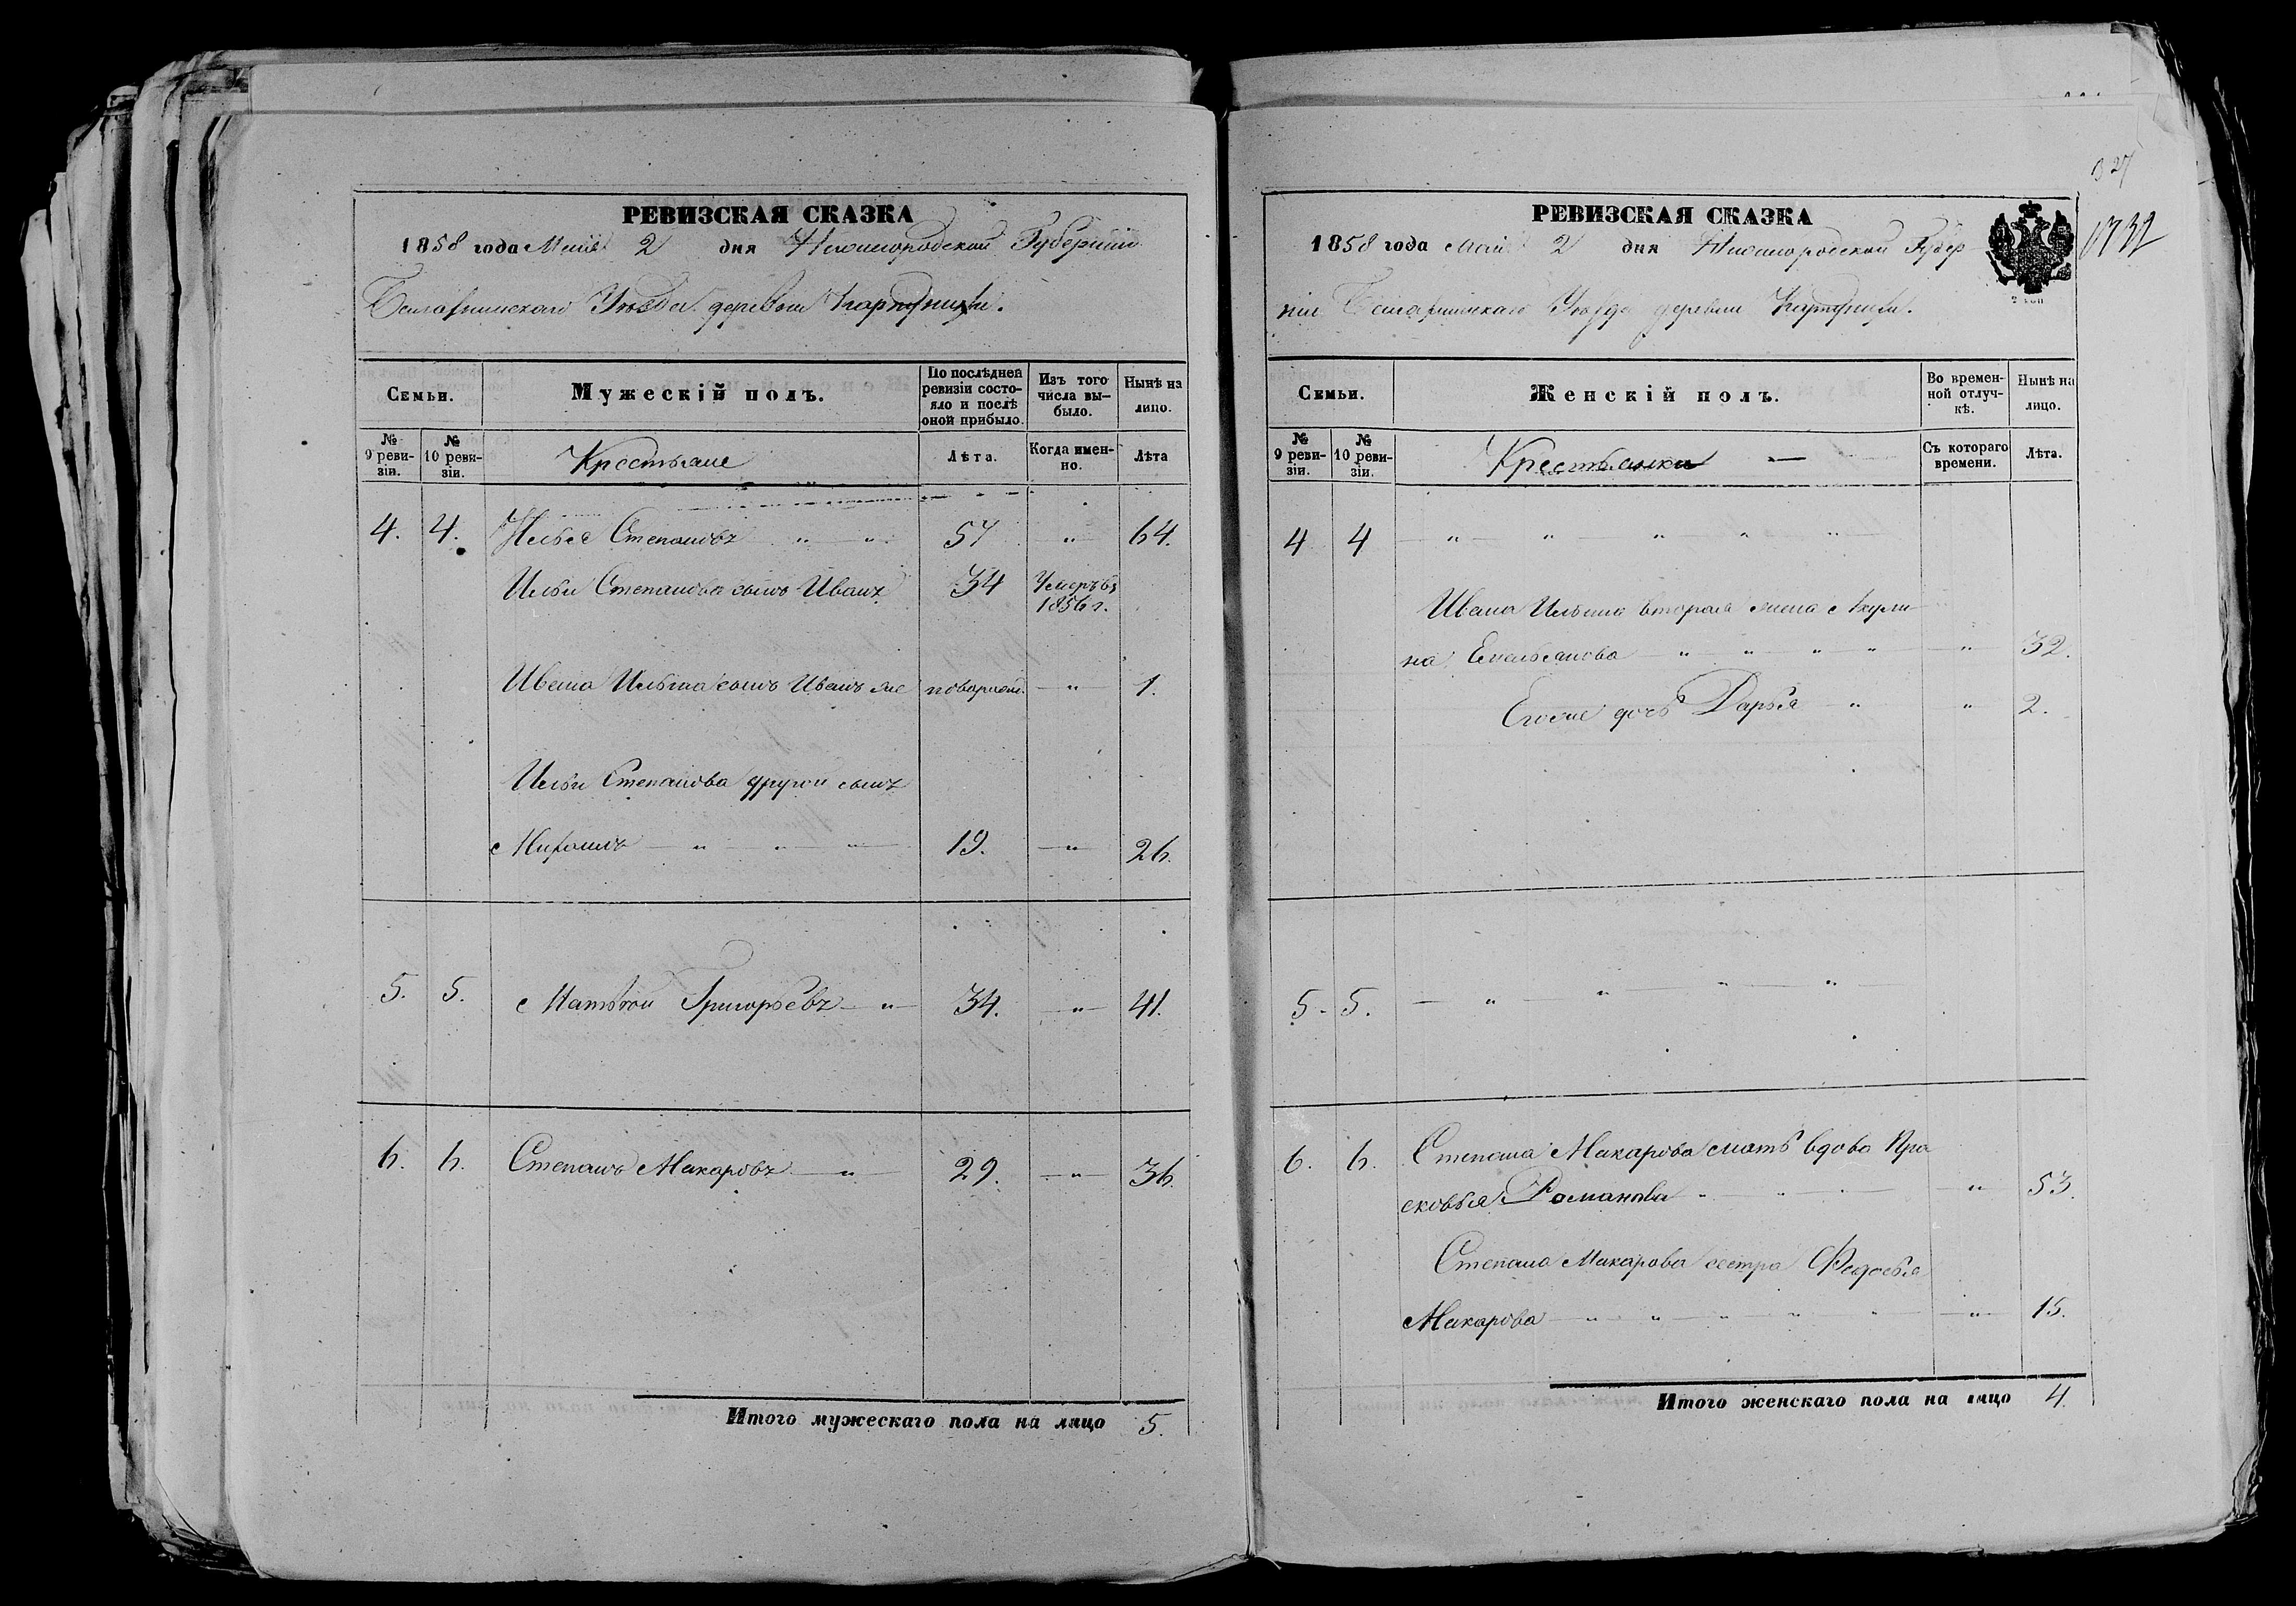 РЕВИЗСКАЯ СКАЗКА
1858 года Маія 2 дня Нижегородской Губерніи
Уѣзда деревни
Семьи.
Мужескій полъ.
По послѣдней ревизіи состояло и послѣ оной прибыло.
Изъ того числа выбыло.
Нынѣ на лицо.
№ 9 ревизіи.
№ 10 ревизіи.
Крестьяне
Лѣта.
Когда именно.
Лѣта
4. 4. Илья Степановъ " " 57 " 64.
Ильи Степанова сынъ Иванъ 34 Умеръ въ 1856 г.
Ивана Ильина сынъ Иванъ же новорожд. " 1.
Ильи Степанова другой сынъ
" " " 19. " 26.
5. 5. Матвей Григорьевъ " 34. " 41.
6. 6. Степанъ Макаровъ " 29. " 36.
Итого мужескаго пола на лицо 5.
327
1732
РЕВИЗСКАЯ СКАЗКА
1858 года Маія 2 дня Нижегородской Губер
ніи Уѣзда деревни
2 коп
Семьи.
Женскій полъ.
Во временной отлучкѣ.
Нынѣ на лицо.
№ 9 ревизіи.
№ 10 ревизіи.
Крестьянки
Съ котораго времени.
Лѣта.
4 4 " " " " "
Ивана Ильина вторая жена Акули-
на Емельянова " " " " " 32.
Его же дочь Дарья " " 2.
5. 5. " " " "
6. 6. Степана Макарова мать вдова Пра
сковья Романова " " " " 53.
Степана Макарова сестра Федосья
Макарова " " " " " " 15.
Итого женскаго пола на лицо 4.